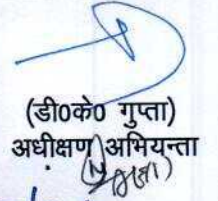 (डी0के0 गुप्ता)
अधीक्षण अभियन्ता